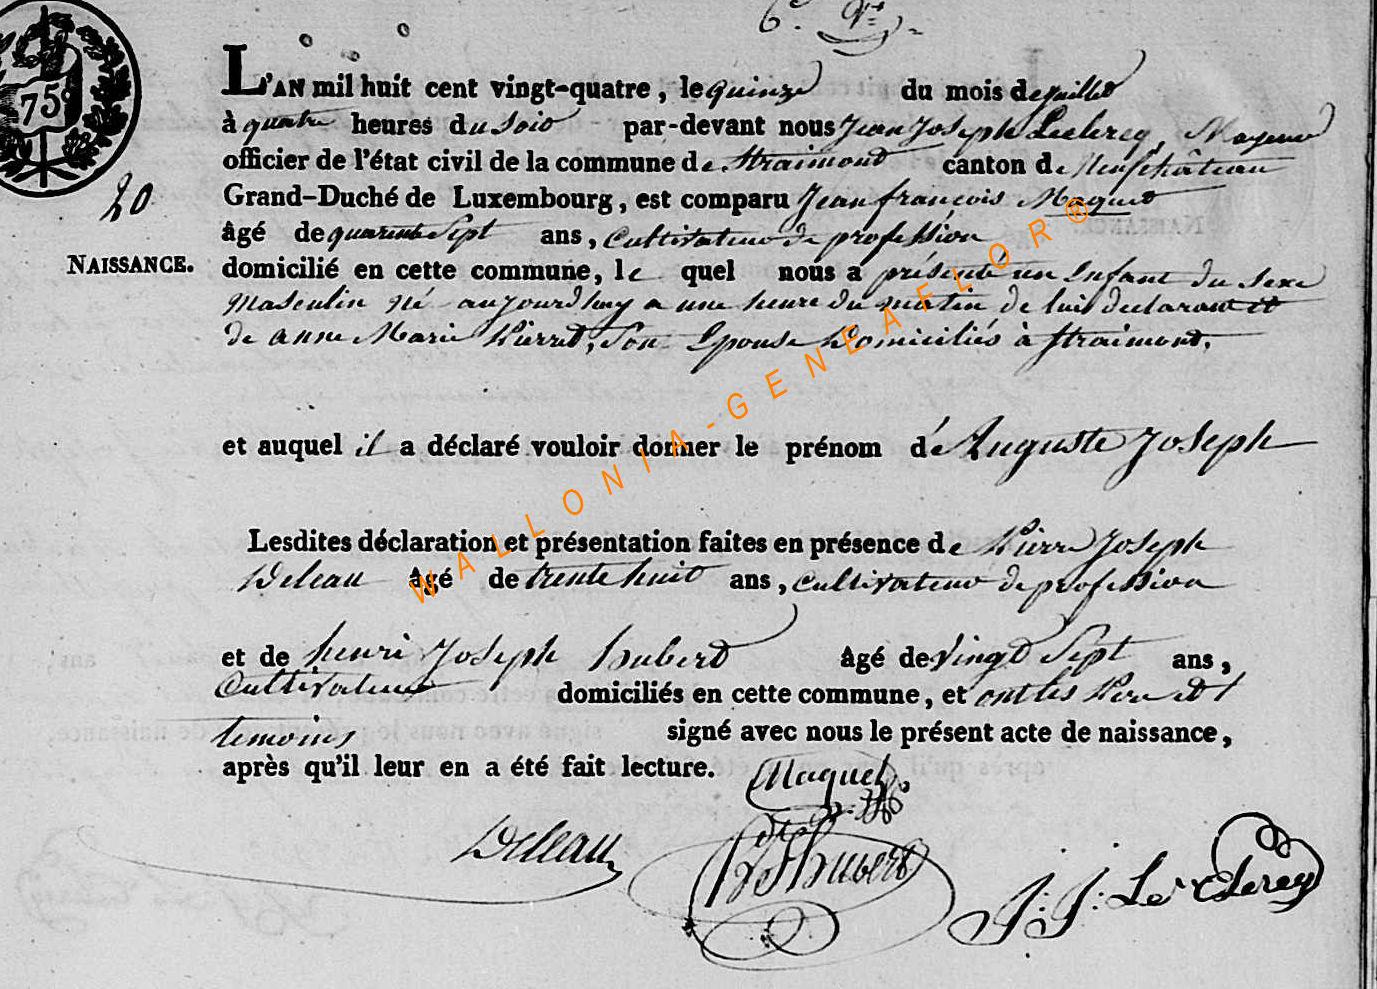 6e. Vs.
75
L'AN mil huit cent vingt-quatre, le quinze du mois de juillet
à quatre heures du Soir par-devant nous Jean Joseph Leclercq, Mayeur
officier de l'état civil de la commune de Straimont canton de Neufchâteau
20
Grand-Duché de Luxembourg, est comparu Jean françois Maquet
âgé de quarante Sept ans, Cultivateur de profession
NAISSANCE.
domicilié en cette commune, le quel nous a présenté un Enfant du Sexe
Masculin Né aujourdhuy a une heure du matin de lui déclarant et
de anne Marie Pierret, Son Epouse Domiciliés à Straimont.
et auquel il a déclaré vouloir donner le prénom dé Auguste Joseph
Lesdites déclaration et présentation faites en présence de Pierre Joseph
Deleau âgé de trente huit ans, cultivateur de profession
et de henri Joseph hubert âgé de vingt Sept ans,
Cultivateur domiciliés en cette commune, et ont les Pere et
temoins signé avec nous le présent acte de naissance,
après qu'il leur en a été fait lecture.
Maquet
Deleau
hubert
J: J: Leclercq
WALLONIA-GENEAFLOR®